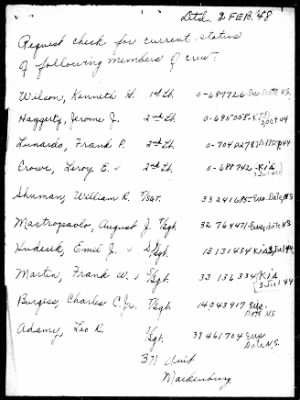 Dtd. 2 FEB. '48
Request check for current status
of following members of crew:
Wilson, Kenneth H. 1st Lt. 0-689726 Eus Date NS.
Haggerty, Jerome J. 2nd Lt. 0-695058
Lunardo, Frank P. 2nd Lt. 0-704278
Crowe, Leroy E. 2nd Lt. 0-689742 KIA
Shuman, William R. T/Sgt. 33241685 Eus. Date NS
Mastropaolo, August J. T/Sgt. 32764471 Eus. Date NS
Hudeck, Emil J. S/Sgt. 13131434 KIA
Martin, Frank W. S/Sgt. 33156334 KIA
3 Jul 44
Burgess, Charles C. Jr. T/Sgt. 14043917 Eus.
Date N.S
Adamy, Leo R. S/Sgt. 39461704 Eus
Date N.S.
371 Unit
Mackenburg